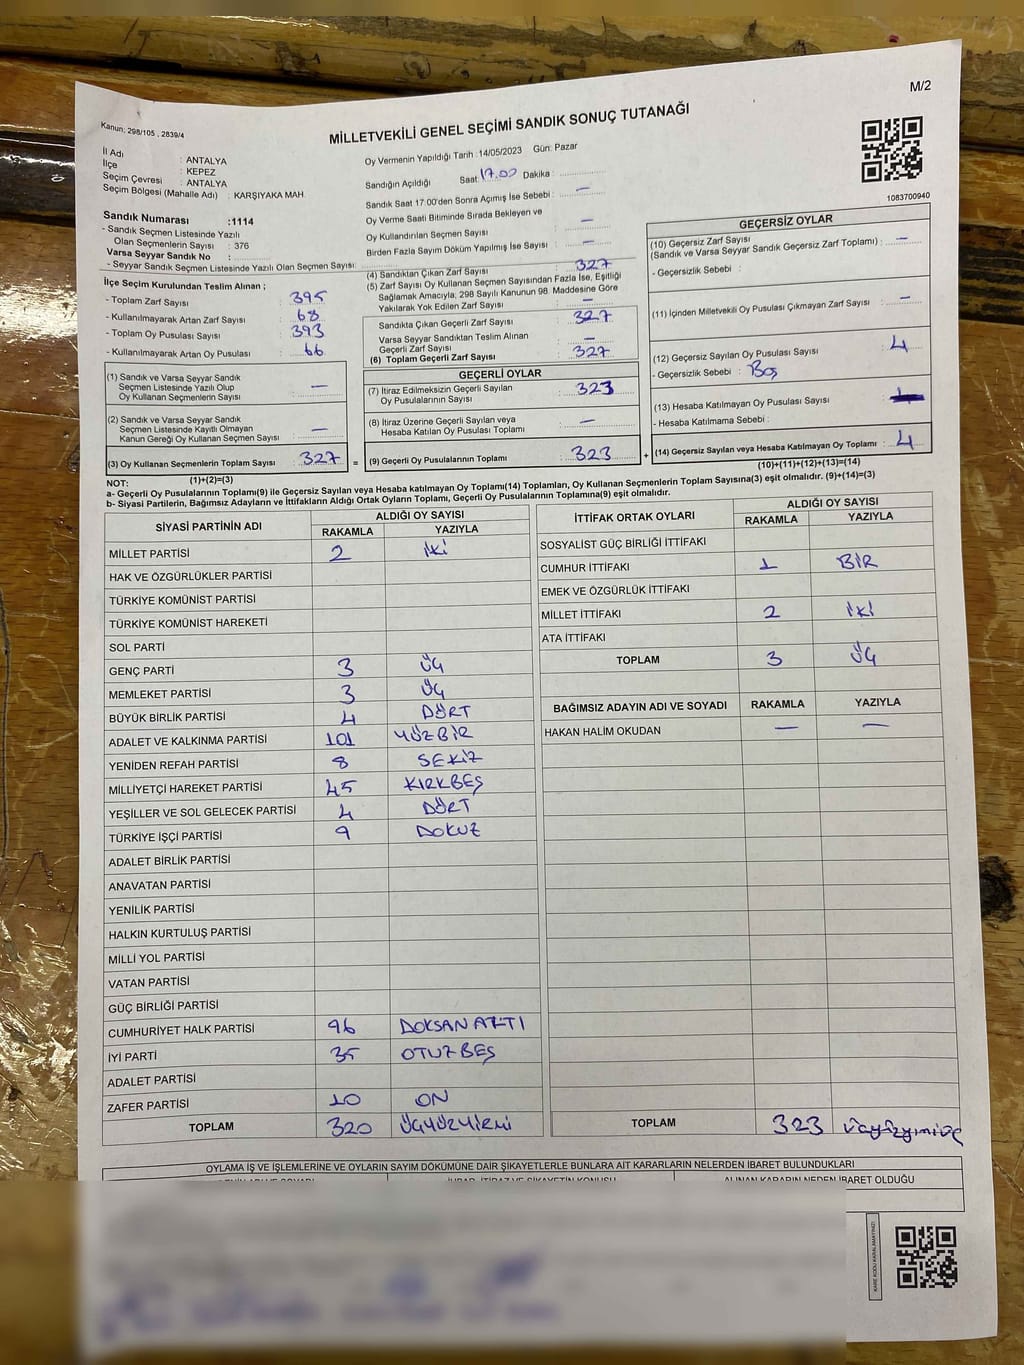 M/2
Kanun; 298/105 , 2839/4
MİLLETVEKİLİ GENEL SEÇİMİ SANDIK SONUÇ TUTANAĞI
İl Adı : ANTALYA
İlçe : KEPEZ
Seçim Çevresi : ANTALYA
Seçim Bölgesi (Mahalle Adı) : KARŞIYAKA MAH.
Sandık Numarası :1114
- Sandık Seçmen Listesinde Yazılı
Olan Seçmenlerin Sayısı : 376
Varsa Seyyar Sandık No :
- Seyyar Sandık Seçmen Listesinde Yazılı Olan Seçmen Sayısı:
İlçe Seçim Kurulundan Teslim Alınan ;
- Toplam Zarf Sayısı : 395
- Kullanılmayarak Artan Zarf Sayısı : 68
- Toplam Oy Pusulası Sayısı : 393
- Kullanılmayarak Artan Oy Pusulası : 66
(1) Sandık ve Varsa Seyyar Sandık
Seçmen Listesinde Yazılı Olup
Oy Kullanan Seçmenlerin Sayısı : —
(2) Sandık ve Varsa Seyyar Sandık
Seçmen Listesinde Kayıtlı Olmayan
Kanun Gereği Oy Kullanan Seçmen Sayısı : —
(3) Oy Kullanan Seçmenlerin Toplam Sayısı : 327
Oy Vermenin Yapıldığı Tarih :14/05/2023 Gün: Pazar
Sandığın Açıldığı Saat: 17.00 Dakika :
Sandık Saat 17.00'den Sonra Açımış İse Sebebi : —
Oy Verme Saati Bitiminde Sırada Bekleyen ve
Oy Kullandırılan Seçmen Sayısı : —
Birden Fazla Sayım Döküm Yapılmış İse Sayısı : —
(4) Sandıktan Çıkan Zarf Sayısı : 327
(5) Zarf Sayısı Oy Kullanan Seçmen Sayısından Fazla İse, Eşitliği
Sağlamak Amacıyla; 298 Sayılı Kanunun 98. Maddesine Göre
Yakılarak Yok Edilen Zarf Sayısı : —
Sandıkta Çıkan Geçerli Zarf Sayısı : 327
Varsa Seyyar Sandıktan Teslim Alınan
Geçerli Zarf Sayısı : —
(6) Toplam Geçerli Zarf Sayısı : 327
GEÇERLİ OYLAR
(7) İtiraz Edilmeksizin Geçerli Sayılan
Oy Pusulalarının Sayısı : 323
(8) İtiraz Üzerine Geçerli Sayılan veya
Hesaba Katılan Oy Pusulası Toplamı : —
= (9) Geçerli Oy Pusulalarının Toplamı : 323 +
1083700940
GEÇERSİZ OYLAR
(10) Geçersiz Zarf Sayısı
(Sandık ve Varsa Seyyar Sandık Geçersiz Zarf Toplamı) : —
- Geçersizlik Sebebi :
(11) İçinden Milletvekili Oy Pusulası Çıkmayan Zarf Sayısı : —
(12) Geçersiz Sayılan Oy Pusulası Sayısı : 4
- Geçersizlik Sebebi : Boş
(13) Hesaba Katılmayan Oy Pusulası Sayısı :
- Hesaba Katılmama Sebebi :
(14) Geçersiz Sayılan veya Hesaba Katılmayan Oy Toplamı : 4
(1)+(2)=(3)
(10)+(11)+(12)+(13)=(14)
NOT:
a- Geçerli Oy Pusulalarının Toplamı(9) ile Geçersiz Sayılan veya Hesaba katılmayan Oy Toplamı(14) Toplamları, Oy Kullanan Seçmenlerin Toplam Sayısına(3) eşit olmalıdır. (9)+(14)=(3)
b- Siyasi Partilerin, Bağımsız Adayların ve İttifakların Aldığı Ortak Oyların Toplamı, Geçerli Oy Pusulalarının Toplamına(9) eşit olmalıdır.
SİYASİ PARTİNİN ADI ALDIĞI OY SAYISI
RAKAMLA YAZIYLA
MİLLET PARTİSİ 2 İKİ
HAK VE ÖZGÜRLÜKLER PARTİSİ
TÜRKİYE KOMÜNİST PARTİSİ
TÜRKİYE KOMÜNİST HAREKETİ
SOL PARTİ
GENÇ PARTİ 3 ÜÇ
MEMLEKET PARTİSİ 3 ÜÇ
BÜYÜK BİRLİK PARTİSİ 4 DÖRT
ADALET VE KALKINMA PARTİSİ 101 YÜZBİR
YENİDEN REFAH PARTİSİ 8 SEKİZ
MİLLİYETÇİ HAREKET PARTİSİ 45 KIRKBEŞ
YEŞİLLER VE SOL GELECEK PARTİSİ 4 DÖRT
TÜRKİYE İŞÇİ PARTİSİ 9 DOKUZ
ADALET BİRLİK PARTİSİ
ANAVATAN PARTİSİ
YENİLİK PARTİSİ
HALKIN KURTULUŞ PARTİSİ
MİLLİ YOL PARTİSİ
VATAN PARTİSİ
GÜÇ BİRLİĞİ PARTİSİ
CUMHURİYET HALK PARTİSİ 96 DOKSAN ALTI
İYİ PARTİ 35 OTUZBEŞ
ADALET PARTİSİ
ZAFER PARTİSİ 10 ON
TOPLAM 320 ÜÇYÜZYİRMİ
İTTİFAK ORTAK OYLARI ALDIĞI OY SAYISI
RAKAMLA YAZIYLA
SOSYALİST GÜÇ BİRLİĞİ İTTİFAKI
CUMHUR İTTİFAKI 1 BİR
EMEK VE ÖZGÜRLÜK İTTİFAKI
MİLLET İTTİFAKI 2 İKİ
ATA İTTİFAKI
TOPLAM 3 ÜÇ
BAĞIMSIZ ADAYIN ADI VE SOYADI RAKAMLA YAZIYLA
HAKAN HALİM OKUDAN — —
TOPLAM 323 üçyüzyirmiüç
OYLAMA İŞ VE İŞLEMLERİNE VE OYLARIN SAYIM DÖKÜMÜNE DAİR ŞİKAYETLERLE BUNLARA AİT KARARLARIN NELERDEN İBARET BULUNDUKLARI
İHBAR, İTİRAZ VE ŞİKAYETİN KONUSU ALINAN KARARIN NEDEN İBARET OLDUĞU
KARE KODU KARALAMAYINIZ!